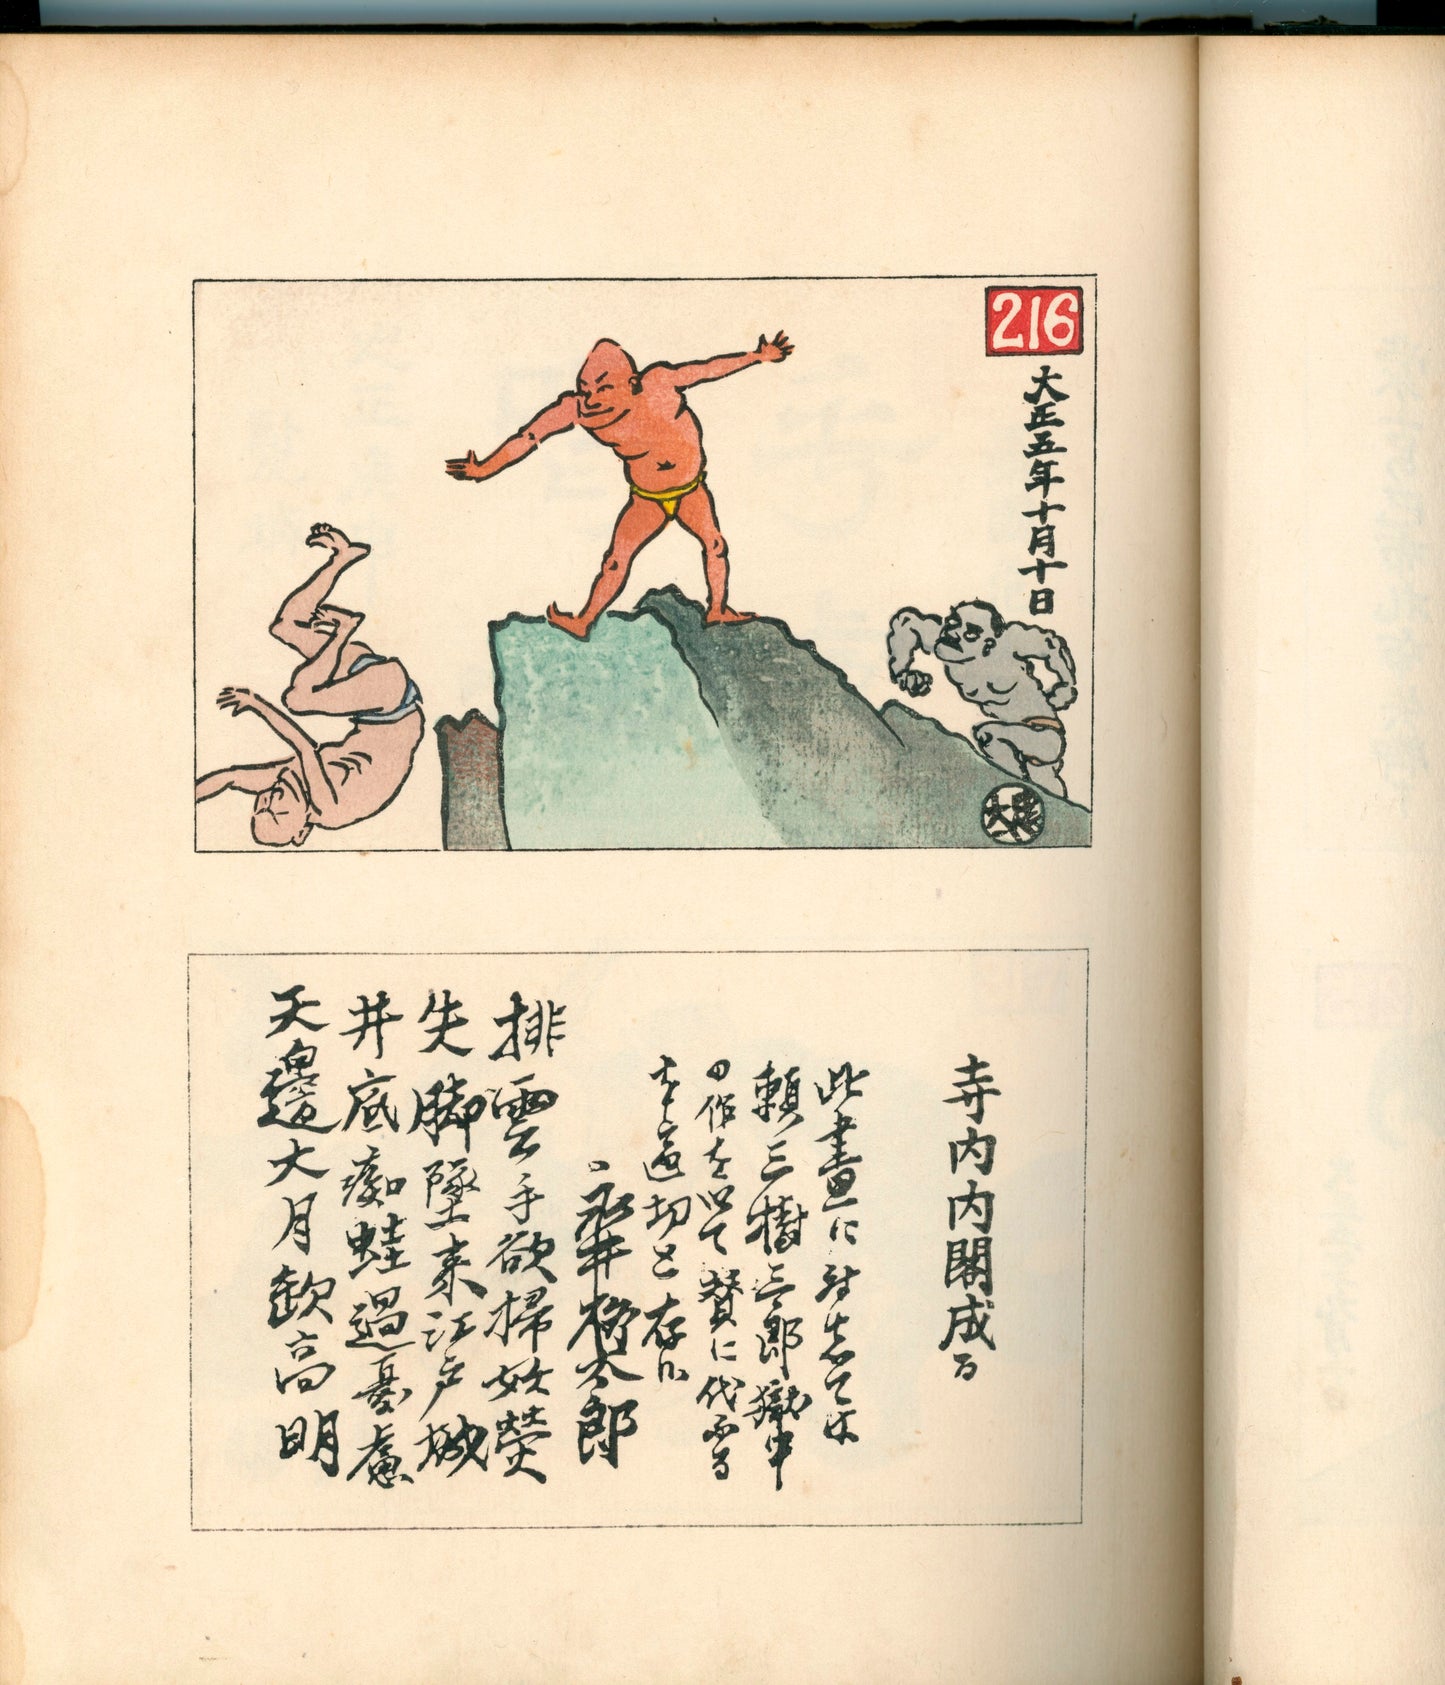 216
大正五年十月十日
寺内内閣成る
此畫に対志ては
頼三樹三郎獄中
の作を以て賛に代ふる
を適切と存ル
永井柳太郎
排雲手欲掃妖熒
失脚墜来江戸城
井底痴蛙過憂慮
天邊大月欽高明